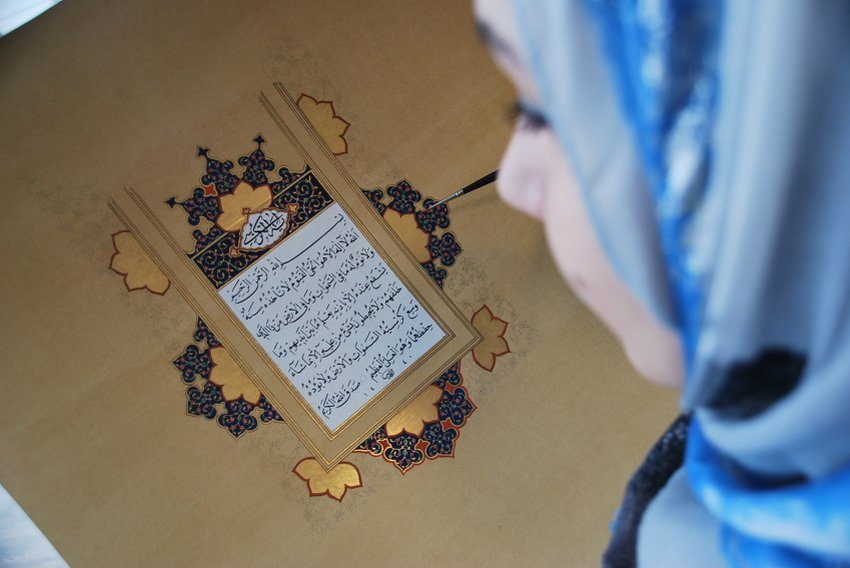 بسم الله الرحمن الرحيم
الله لا إله إلا هو الحي القيوم لا تأخذه سنة
ولا نوم له ما في السموات وما في الأرض من ذا الذي
يشفع عنده إلا بإذنه يعلم ما بين أيديهم وما
خلفهم ولا يحيطون بشيء من علمه إلا بما شاء
وسع كرسيه السموات والأرض ولا يؤده
حفظهما وهو العلي العظيم
صدق الله الكريم